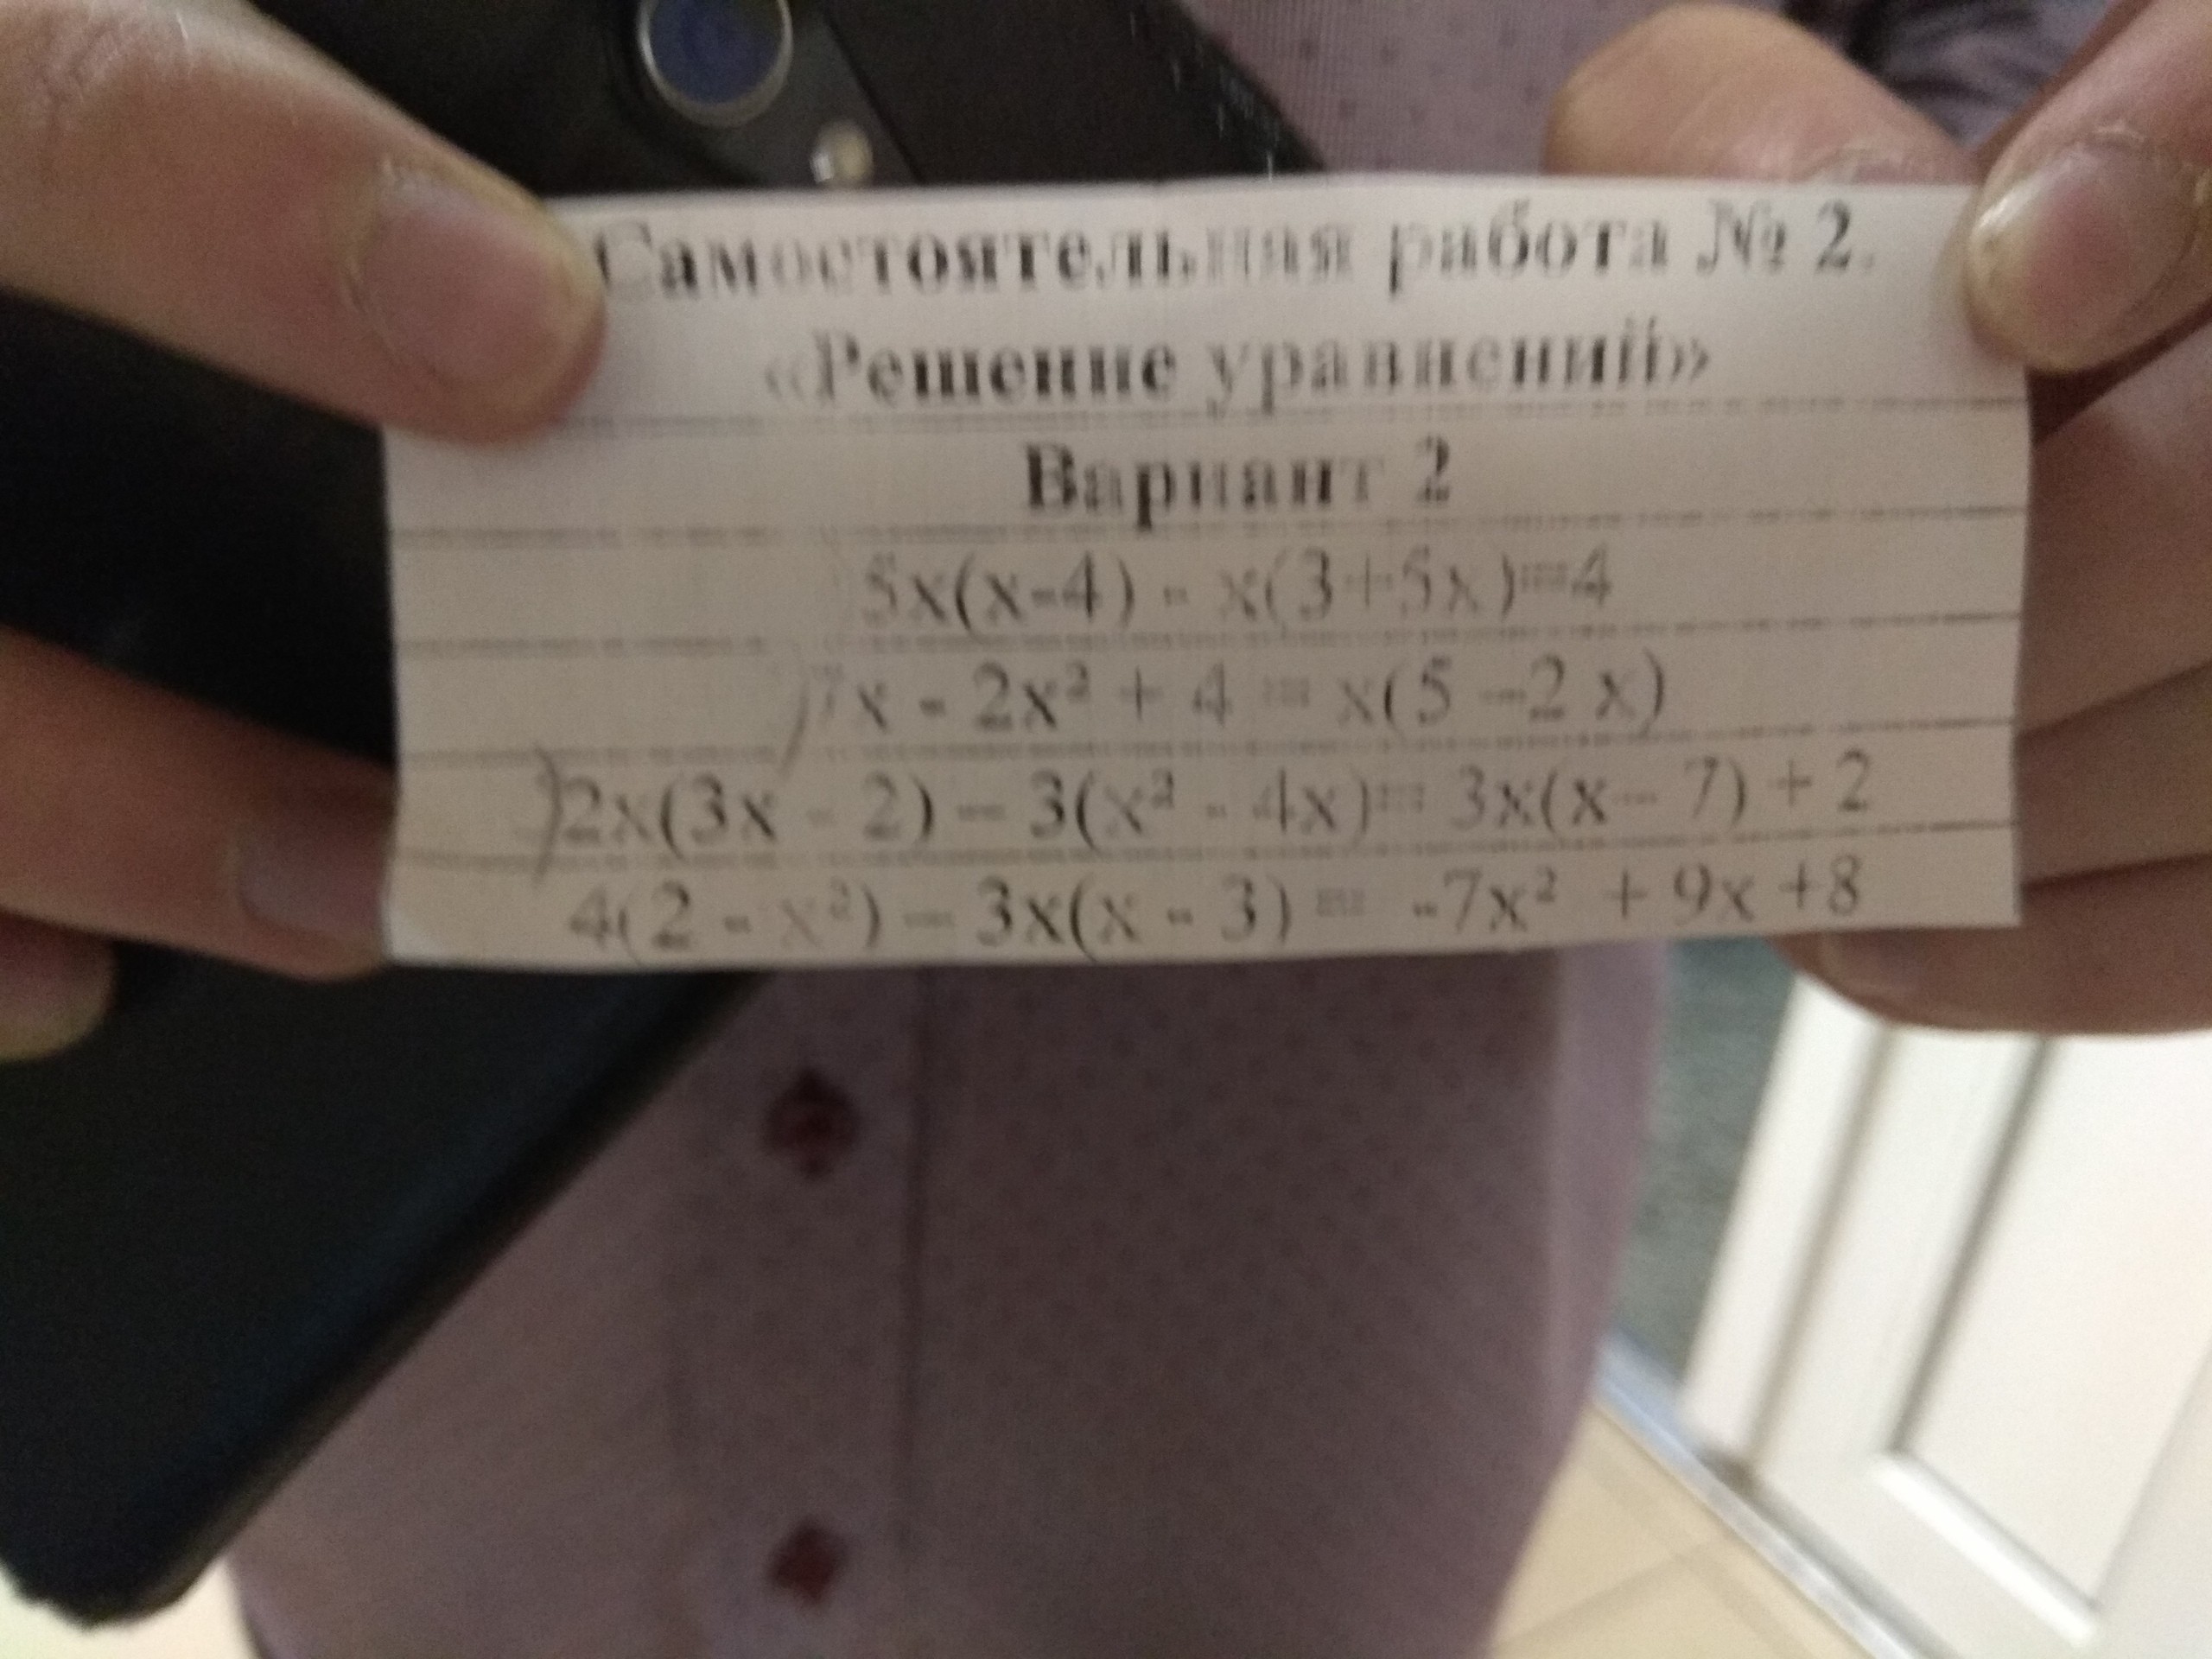 Самостоятельная работа № 2.
«Решение уравнений»
Вариант 2
5x(x-4) - x(3+5x)=4
7x - 2x² + 4 = x(5 –2 x)
2x(3x - 2) – 3(x² - 4x)= 3x(x– 7) + 2
4(2 - x²) – 3x(x - 3) = -7x² + 9x +8